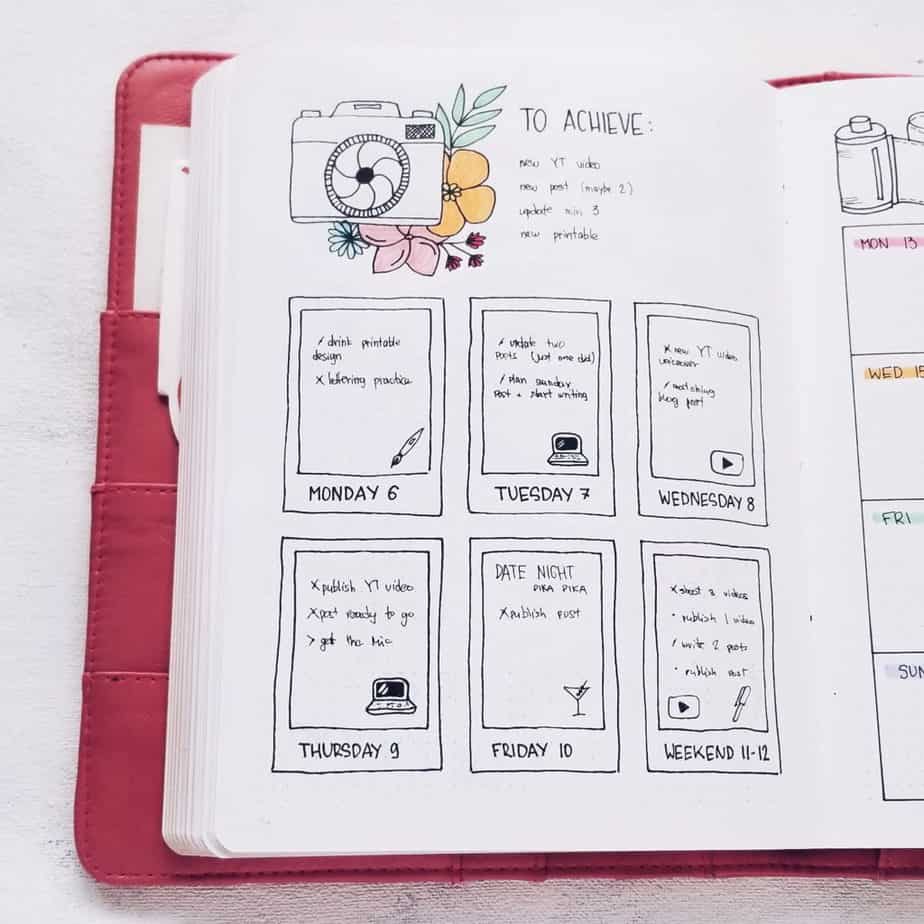 TO ACHIEVE:
new YT video
new post (maybe 2)
update min 3
new printable
/ drink printable
design
x lettering practice
MONDAY 6
/ update two
posts (just one did)
/ plan sunday
post + start writing
TUESDAY 7
x new YT video
voiceover
/ matching
blog post
WEDNESDAY 8
x publish YT video
x post ready to go
> get the Mic
THURSDAY 9
DATE NIGHT
PIKA PIKA
x publish post
FRIDAY 10
x shoot 3 videos
• publish 1 video
/ write 2 posts
• publish post
WEEKEND 11-12
MON 13
WED 15
FRI
SUN